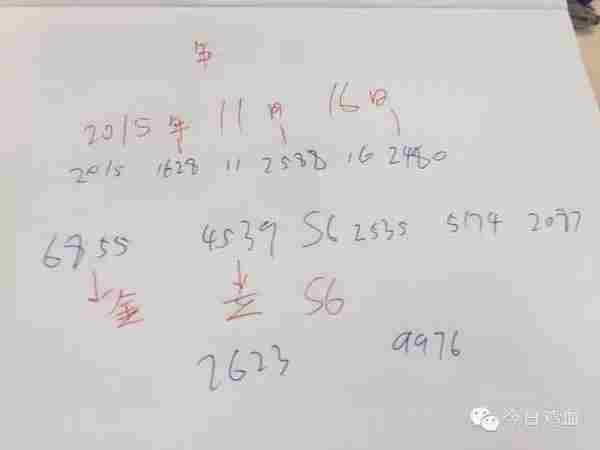 年
2015年 11月 16日
2015 1628 11 2588 16 2480
6855 4539 56 2535 5174 2077
金 三 56
2623 9976
今日鸡血